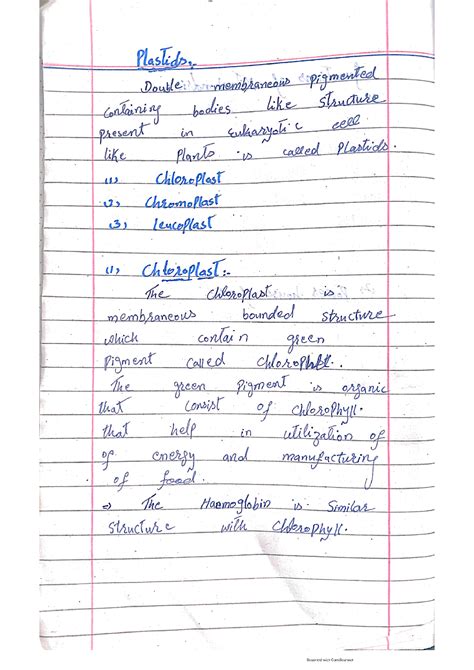 Plastids:-
Double membraneous pigmented
containing bodies like structure
present in eukaryotic cell
like Plants is called Plastids.
(1) Chloroplast
(2) Chromoplast
(3) Leucoplast
(1) Chloroplast:-
The Chloroplast is
membraneous bounded structure
which contain green
pigment called Chlorophyll.
The green pigment is organic
that consist of Chlorophyll.
that help in utilization of
of energy and manufacturing
of food.
⇒ The Haemoglobin is Similar
structure with Chlorophyll.